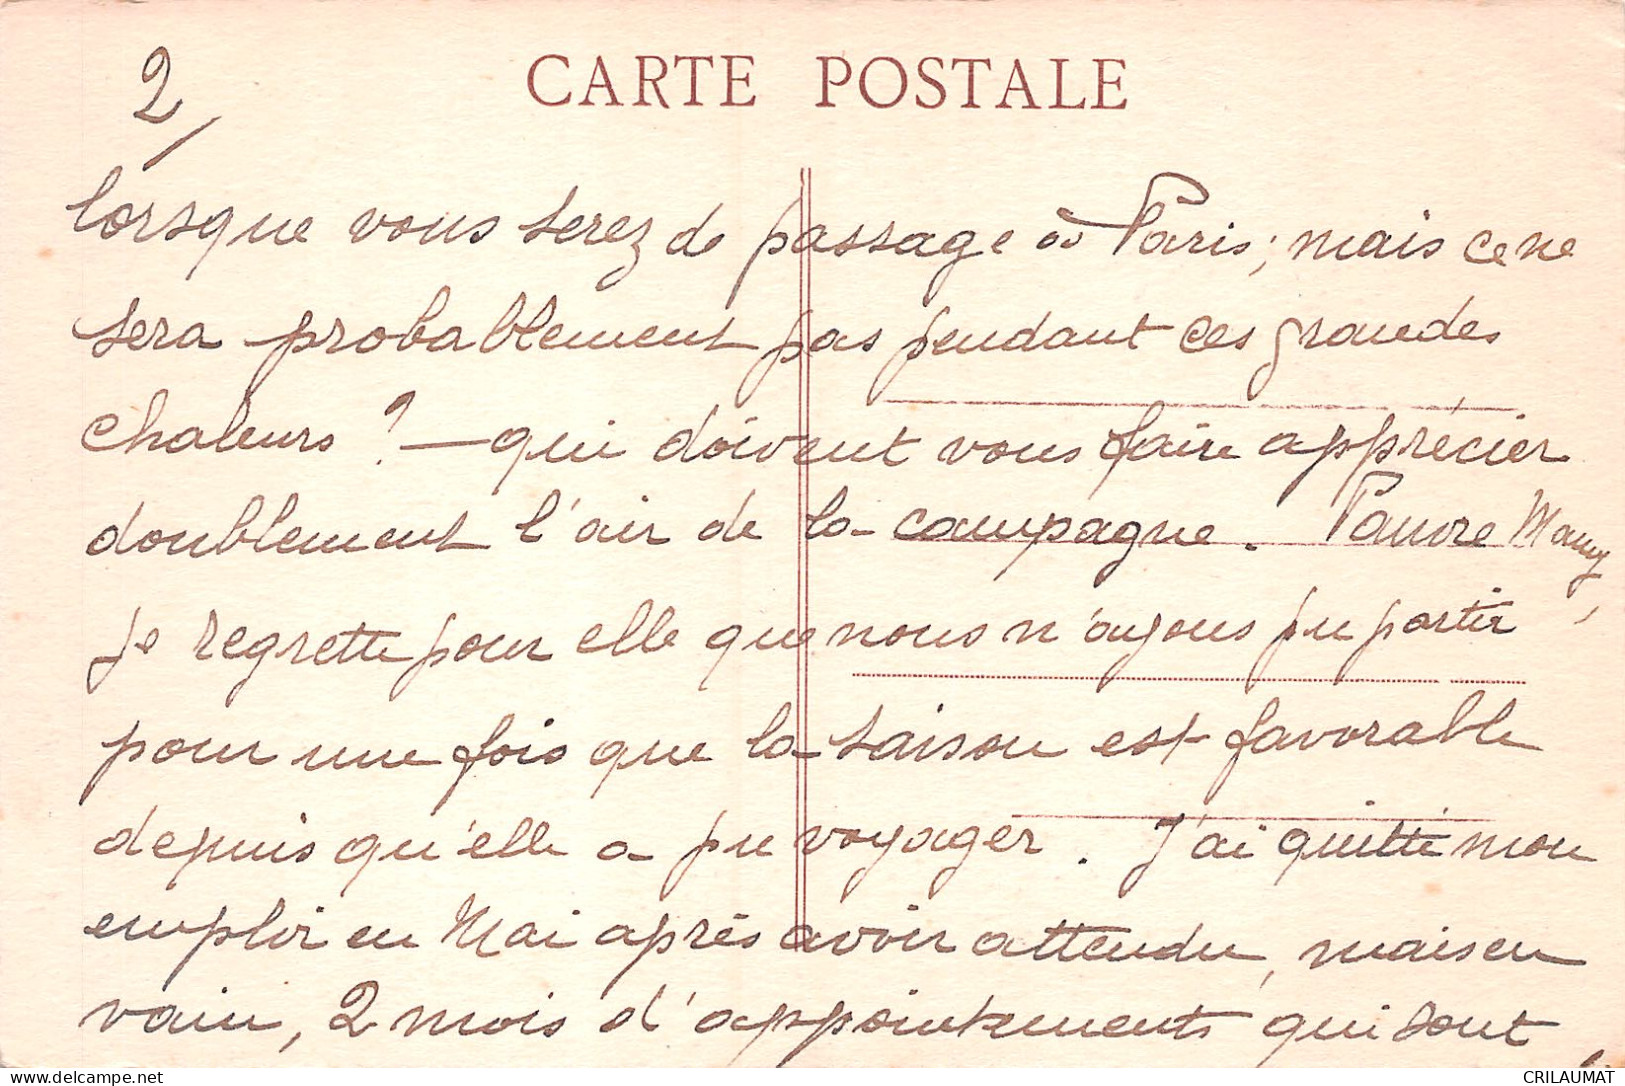 2/
CARTE POSTALE
lorsque vous serez de passage à Paris; mais ce ne
sera probablement pas pendant ces grandes
chaleurs ? — qui doivent vous faire apprécier
doublement l'air de la campagne. Pauvre Mamy,
je regrette pour elle que nous n'ayons pu partir
pour une fois que la saison est favorable
depuis qu'elle a pu voyager. J'ai quitté mon
emploi en Mai après avoir attendu, mais en
vain, 2 mois d'appointements qui sont
delcampe.net
CRILAUMAT